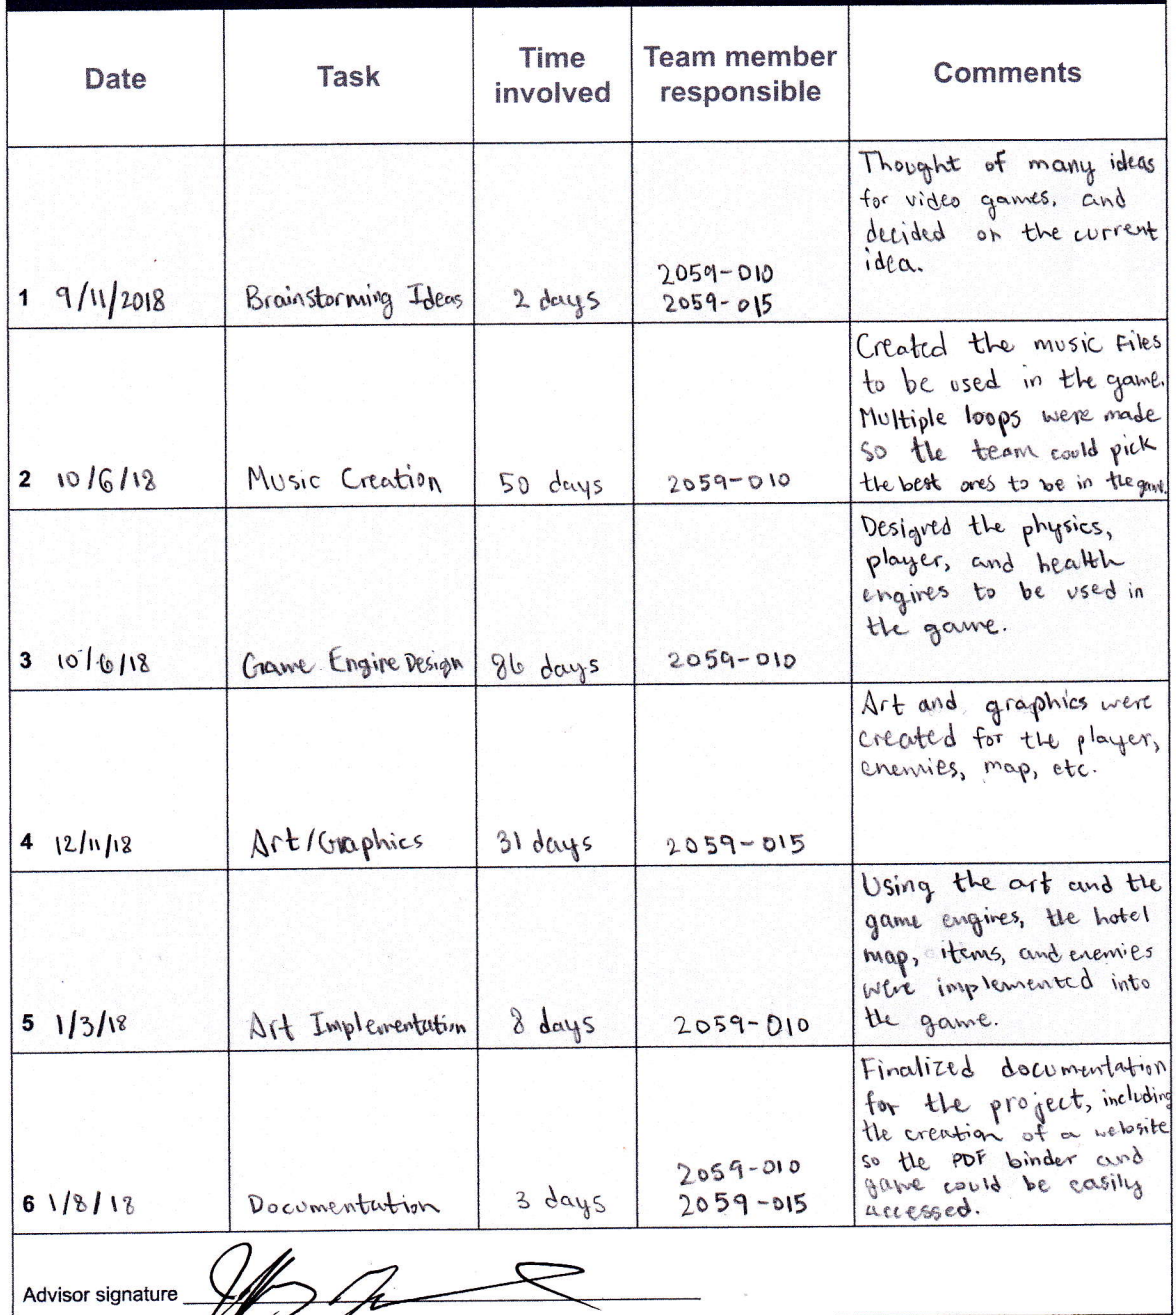 Date
Task
Time
involved
Team member
responsible
Comments
1 9/11/2018
Brainstorming Ideas
2 days
2059-010
2059-015
Thought of many ideas
for video games, and
decided on the current
idea.
2 10/6/18
Music Creation
50 days
2059-010
Created the music files
to be used in the game.
Multiple loops were made
so the team could pick
the best ones to be in the game.
3 10/6/18
Game Engine Design
86 days
2059-010
Designed the physics,
player, and health
engines to be used in
the game.
4 12/11/18
Art/Graphics
31 days
2059-015
Art and graphics were
created for the player,
enemies, map, etc.
5 1/3/18
Art Implementation
8 days
2059-010
Using the art and the
game engines, the hotel
map, items, and enemies
were implemented into
the game.
6 1/8/18
Documentation
3 days
2059-010
2059-015
Finalized documentation
for the project, including
the creation of a website
so the PDF binder and
game could be easily
accessed.
Advisor signature